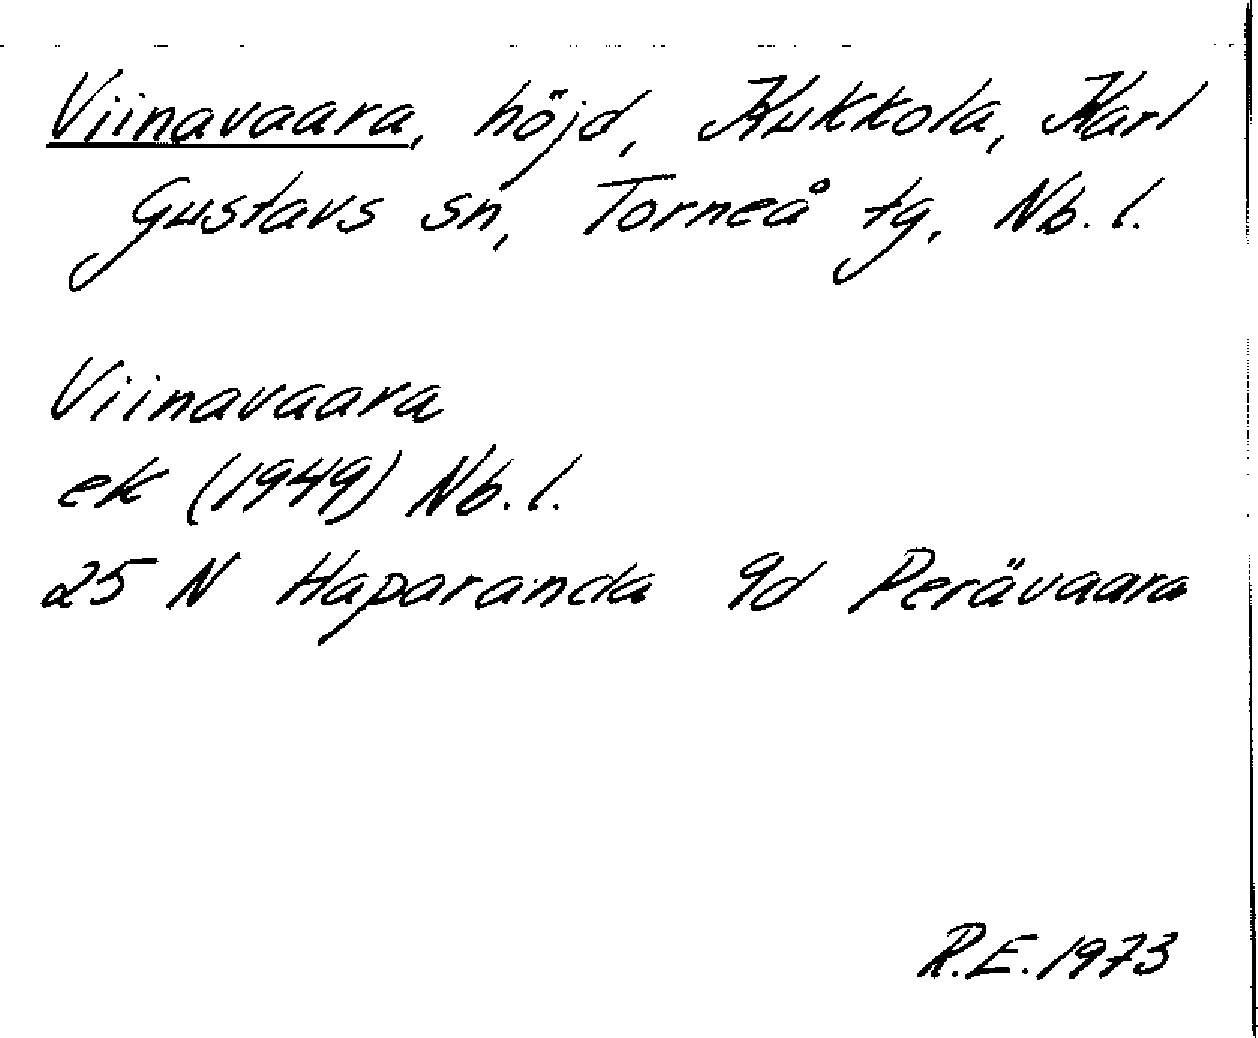 Viinavaara, höjd, Kukkola, Karl
Gustavs sn, Torneå tg, Nb. l.
Viinavaara
ek (1949) Nb. l.
25 N Haparanda 9d Perävaara
R.E. 1973